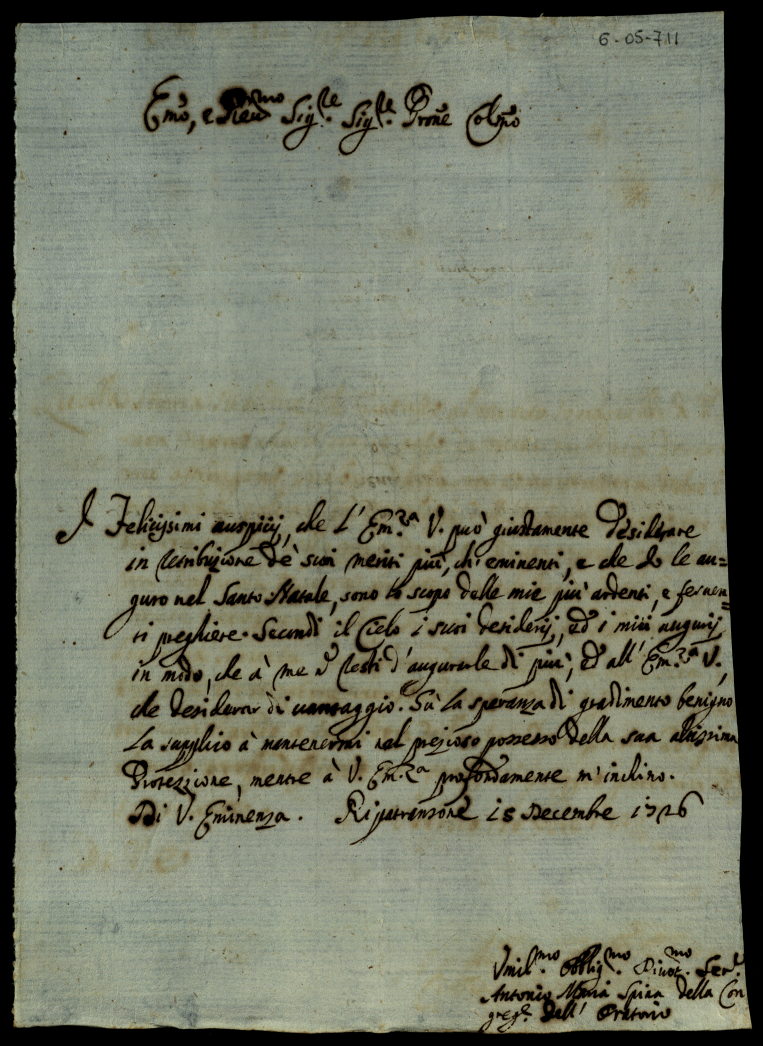 6-05-711
Emo, e Reu.mo Sig.re Sig.re Prone Colmo
I Felicissimi auspicij, che l' Em.za V. può giustamente desiderare
in retribuzione de' suoi meriti più, ch' eminenti, e che Io le au=
guro nel Santo Natale, sono lo scopo delle mie più ardenti, e feruen=
ti preghiere. Secondi il Cielo i suoi desiderij, ed i miei augurij
in modo, che à me ñ resti d'augurarle di più, ed all' Em.za V.
che desiderar di uantaggio. Sù la speranza di gradimento benigno
la supplico à mantenermi nel prezioso possesso della sua altissima
Protezzione, mentre à V. Em.za profondamente m' inchino.
Di V. Eminenza. Ripatransone 15 Decembre 1726
Vmil.mo Obblig.mo Diuot.mo Ser.e
Antonio Maria Spina della Con
greg.e dell' Oratorio